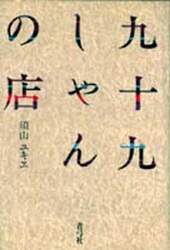 九十九
しゃん
の店
須山 ユキエ
青弓社